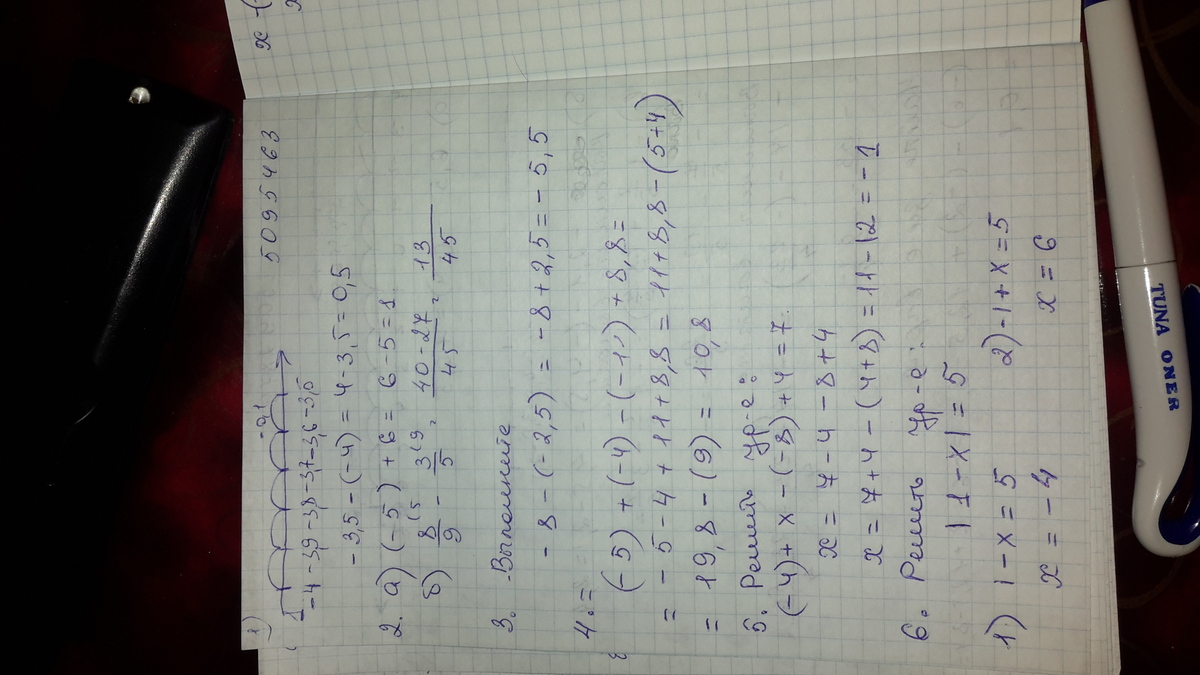 1) -0,1 5095463
-4 -3,9 -3,8 -3,7 -3,6 -3,5
-3,5-(-4) = 4-3,5=0,5
2. а) (-5)+6 = 6-5=1
б) 8(5/9 - 3(9/5 = 40-27/45 = 13/45
3. Выполните
-8-(-2,5) = -8+2,5=-5,5
4.=
(-5)+(-4)-(-11)+8,8=
= -5-4+11+8,8 = 11+8,8-(5+4)
= 19,8-(9) = 10,8
5. Решить ур-е:
(-4)+x-(-8)+4=7
x = 7-4-8+4
x = 7+4-(4+8)=11-12=-1
6. Решить ур-е:
|1-x|=5
1) 1-x=5 2)-1+x=5
x=-4 x=6
TUNA ONER